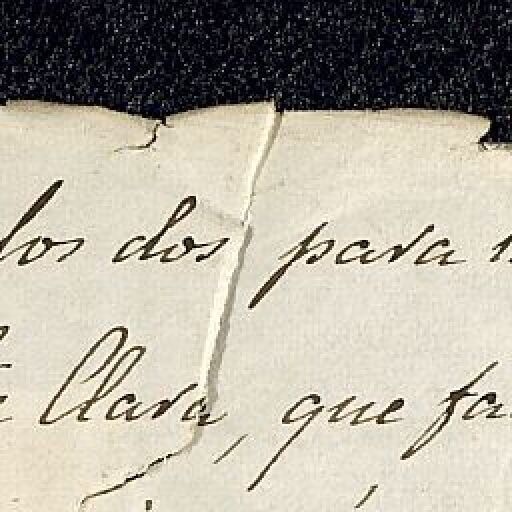 los dos para
Clara, que fa